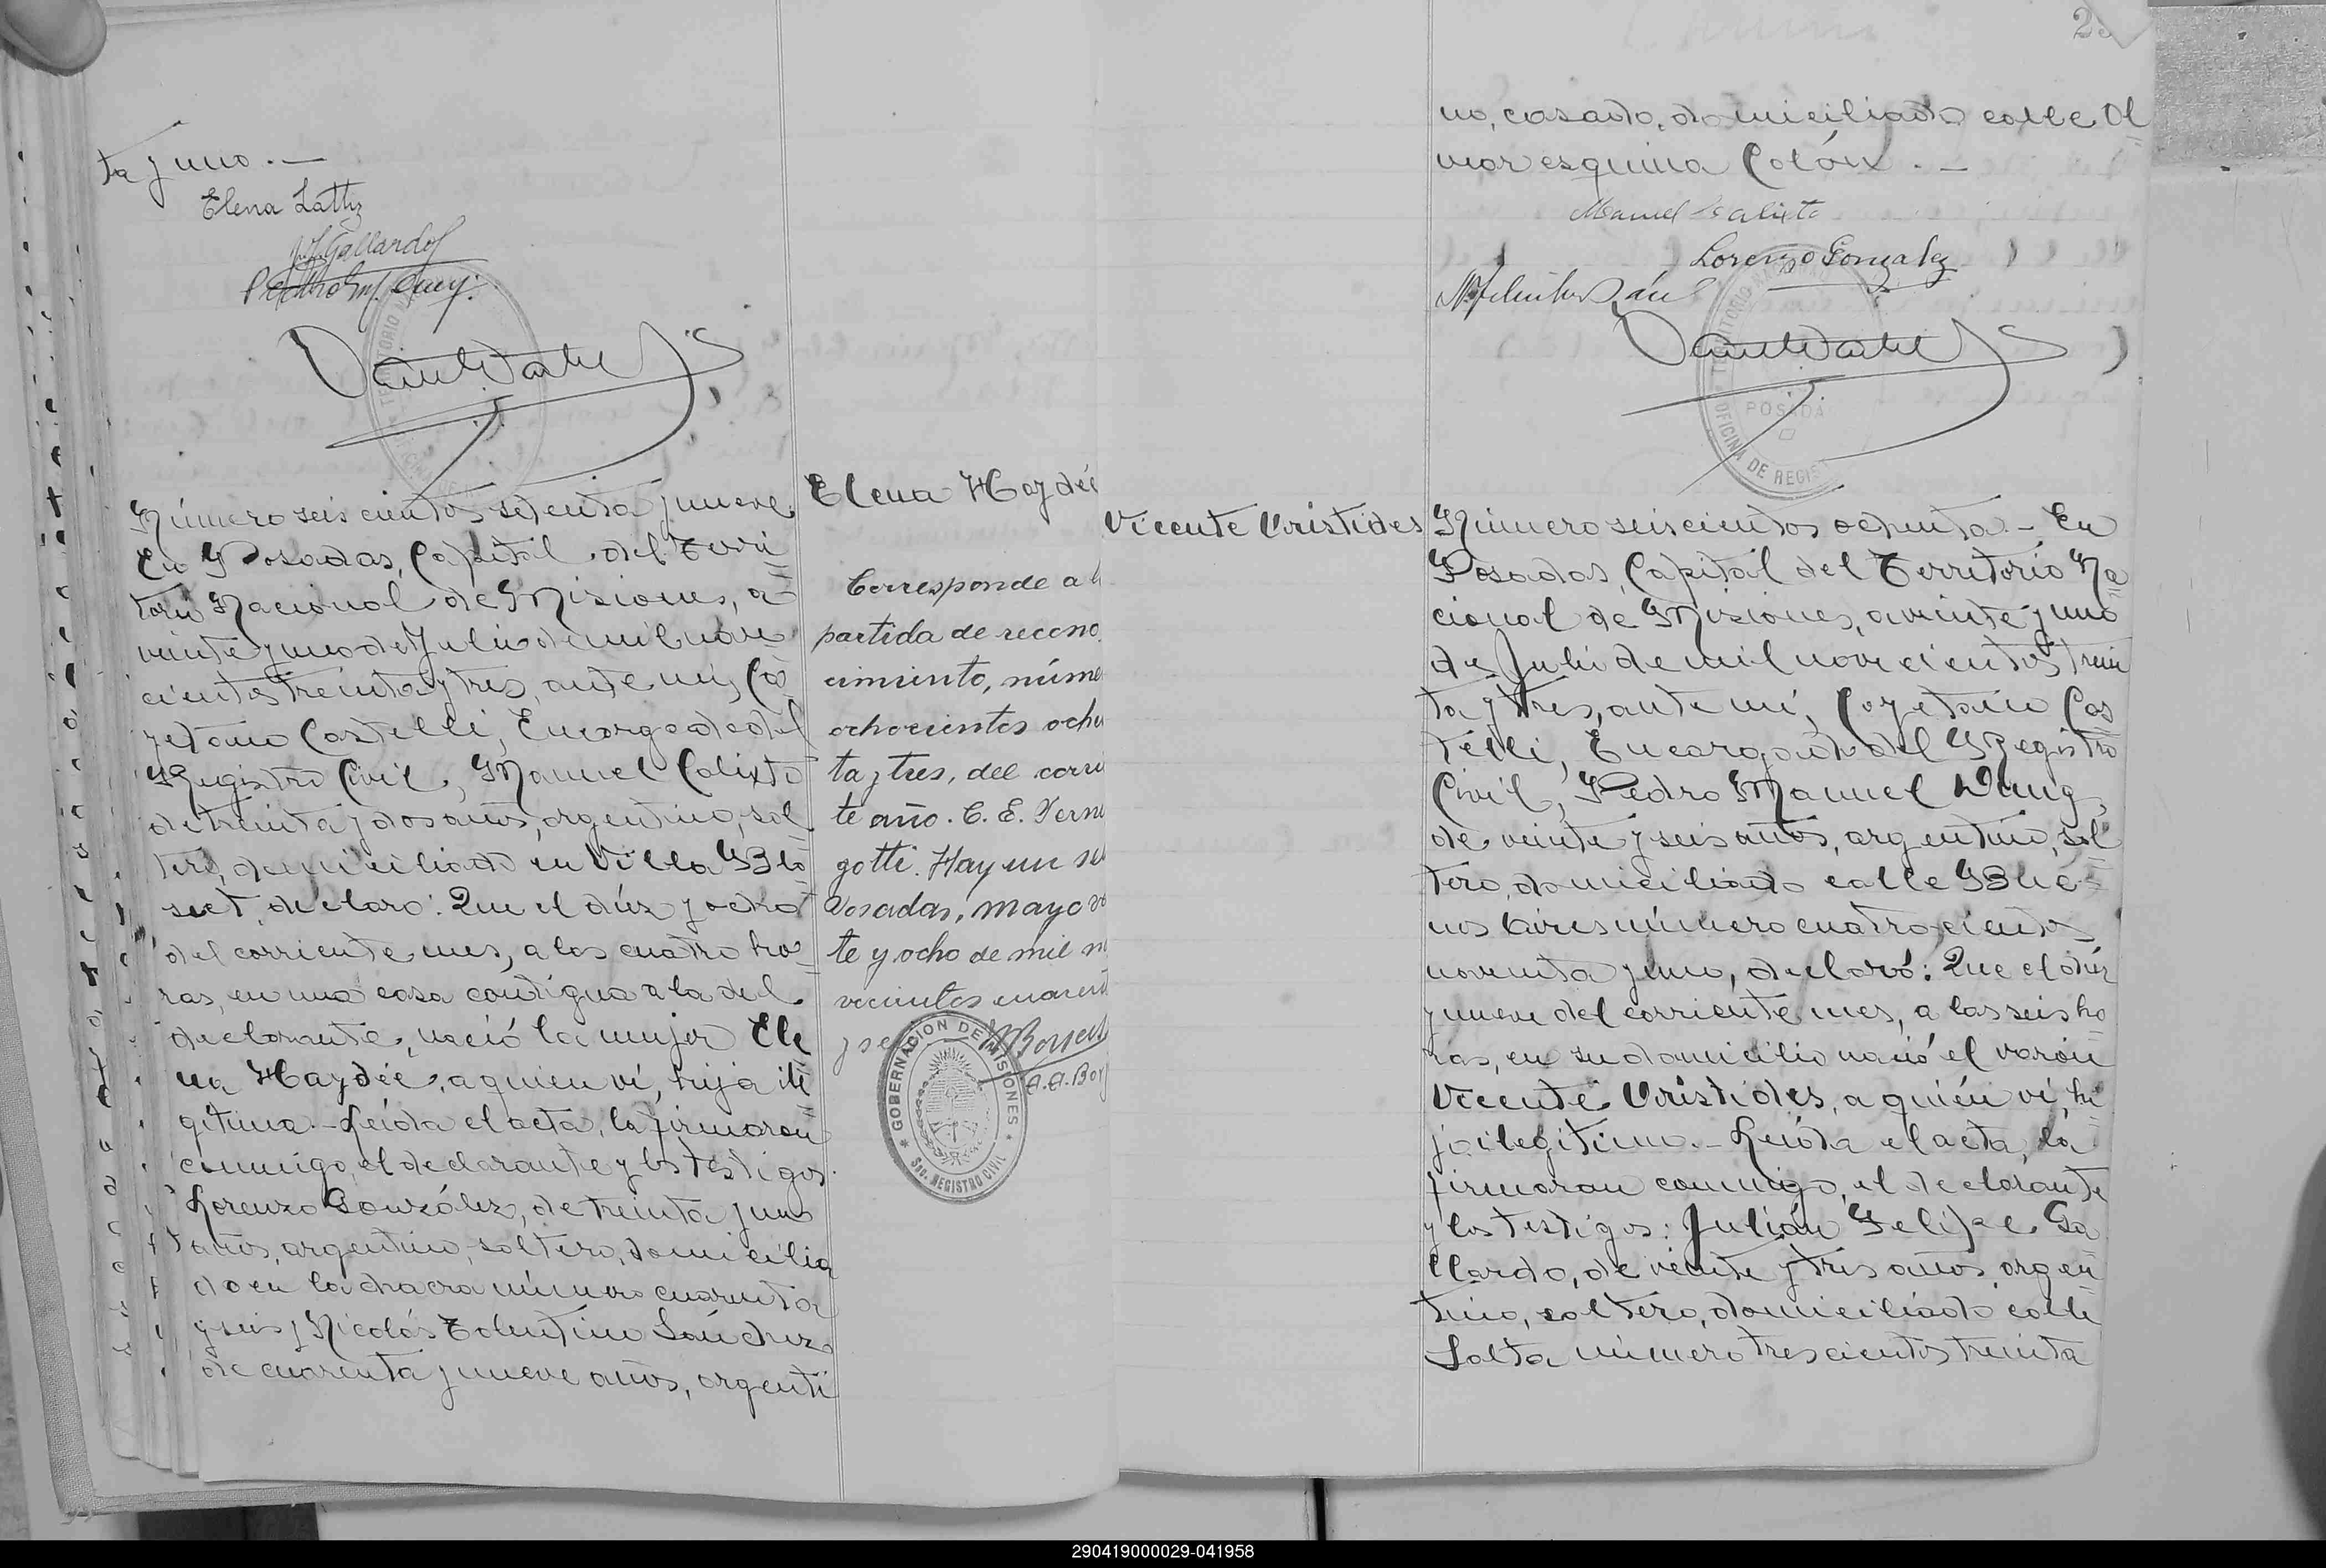 ta y uno.—
Elena Lattiz
J. F. Gallardo
Pedro M.
Número seiscientos setenta y nueve
En Posadas, Capital del Terri
torio Nacional de Misiones, a
veinte y uno de Julio de mil nove
cientos treinta y tres, ante mí, Ca
yetano Castelli, Encargado del
Registro Civil, Manuel Calixto
de treinta y dos años, argentino, sol
tero, domiciliado en Villa Blo
sset, declaró: Que el diez y ocho
del corriente mes, a las cuatro ho
ras, en una casa contigua a la del
declarante, nació la mujer Ele
na Haydée, a quien ví, hija ile
gítima.—Leída el acta, la firmaron
conmigo, el declarante y los testigos
Lorenzo González, de treinta y uno
años, argentino, soltero, domicilia
do en la chacra número cuarenta
y seis y Nicolás Tolentino Sánchez
de cuarenta y nueve años, argenti
Elena Haydée
Corresponde a l
partida de recono
cimiento, núme
ochocientos oche
ta y tres, del corri
te año. C. E. Verni
gotti. Hay un se
Posadas, Mayo ve
te y ocho de mil n
vecientos cuarent
y se
A. A. Boy
GOBERNACION DE MISIONES
SEC. REGISTRO CIVIL
Vicente Aristides
no, casado, domiciliado calle Al
vear esquina Colón.—
Manuel Calixto
Lorenzo González
TERRITORIO
POSADA
OFICINA DE REGIS
Número seiscientos ochenta.—En
Posadas, Capital del Territorio Na
cional de Misiones, a veinte y uno
de Julio de mil novecientos trein
ta y tres, ante mí, Cayetano Cas
telli, Encargado del Registro
Civil, Pedro Manuel
de veinte y seis años, argentino, sol
tero, domiciliado calle Bue
nos Aires número cuatrocientos
noventa y uno, declaró: Que el diez
y nueve del corriente mes, a las seis ho
ras, en su domicilio nació el varón
Vicente Aristides, a quién ví, hi
jo ilegítimo.—Leída el acta, la
firmaron conmigo, el declarante
y los testigos: Julián Felipe Ga
llardo, de veinte y tres años, argen
tino, soltero, domiciliado calle
Salta número trescientos treinta
290419000029-041958